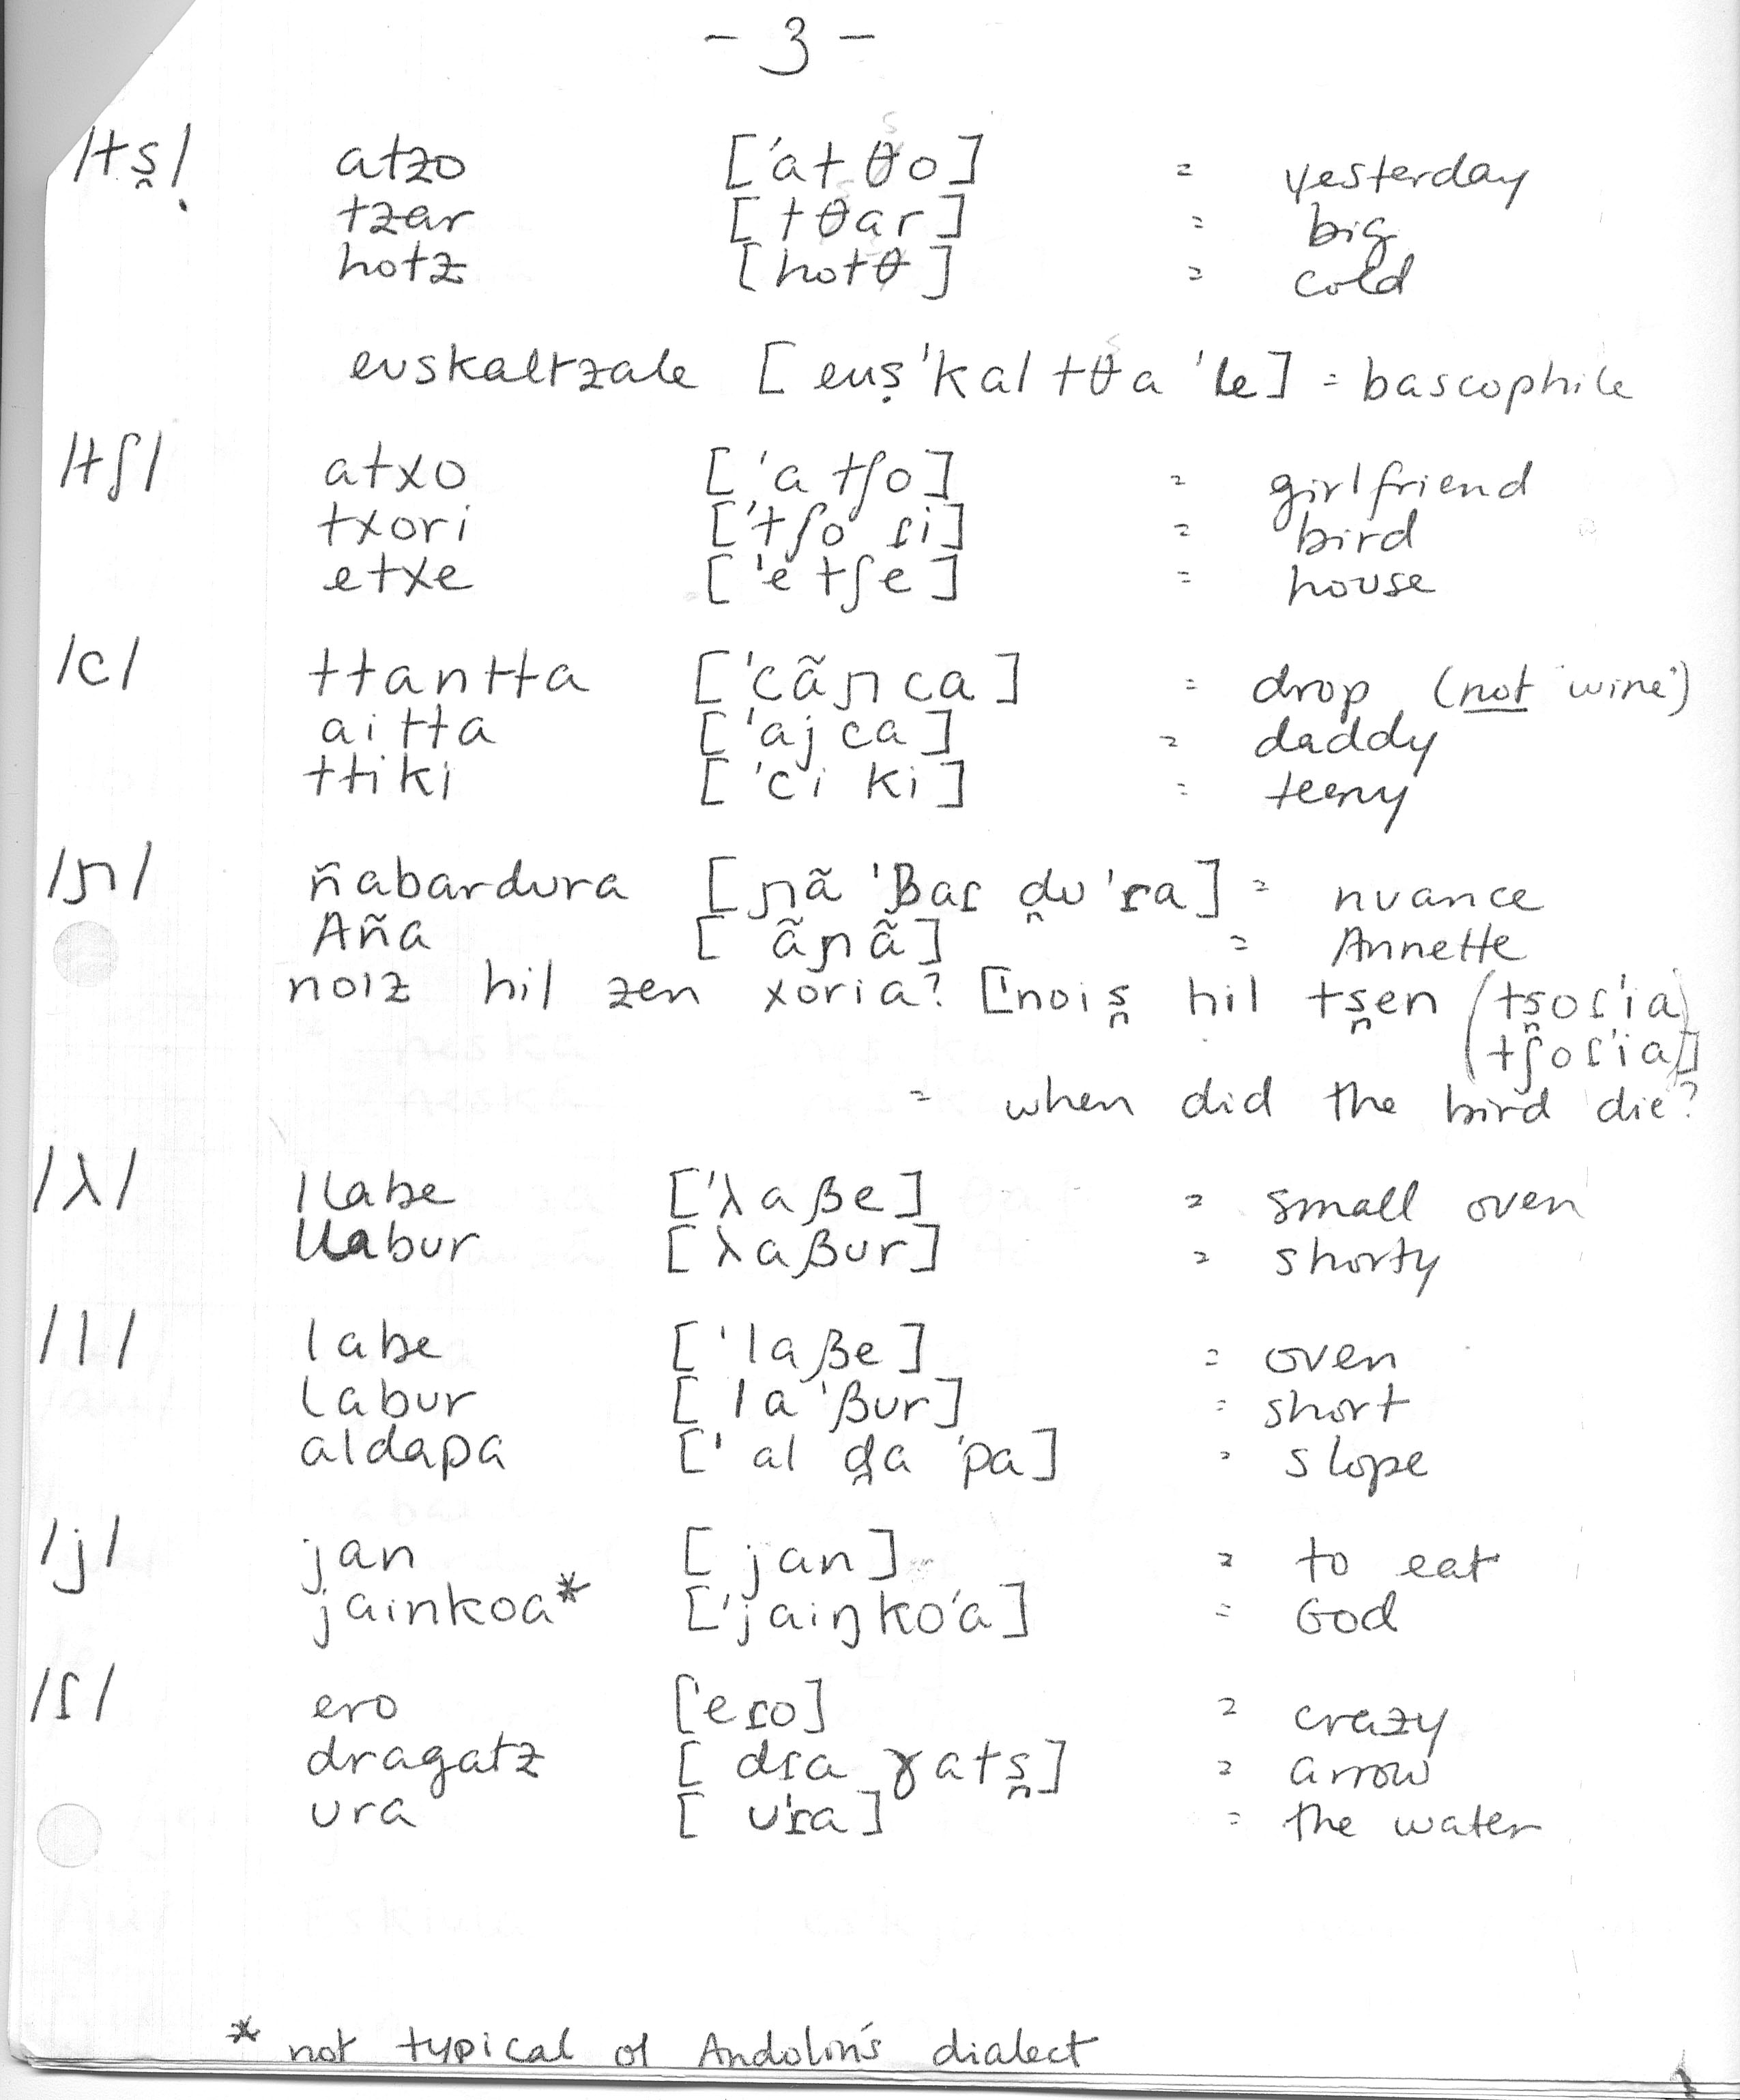 - 3 -
/ts̺/ atzo ['atθo] = yesterday
tzar [tθar] = big
hotz [hotθ] = cold
euskaltzale [euṣ'kaltθa'le] = bascophile
/tʃ/ atxo ['atʃo] = girlfriend
txori ['tʃoɾi] = bird
etxe ['etʃe] = house
/c/ ttantta ['cãɲca] = drop (not wine)
aitta ['ajca] = daddy
ttiki ['ciki] = teeny
/ɲ/ ñabardura [ɲã'βaɾd̪u'ɾa] = nuance
Aña [ãɲã] = Annette
noiz hil zen xoria? ['nois̺ hil ts̺en (ts̺oɾ'ia)
(tʃoɾ'ia)]
= when did the bird die?
/λ/ llabe ['λaβe] = small oven
llabur [λaβur] = shorty
/l/ labe ['laβe] = oven
labur [la'βur] = short
aldapa ['ald̪a'pa] = slope
/j/ jan [jan] = to eat
jainkoa* ['jaiŋko'a] = God
/ɾ/ ero ['eɾo] = crazy
dragatz [dɾaɣats̺] = arrow
ura [u'ɾa] = the water
* not typical of Andolin's dialect